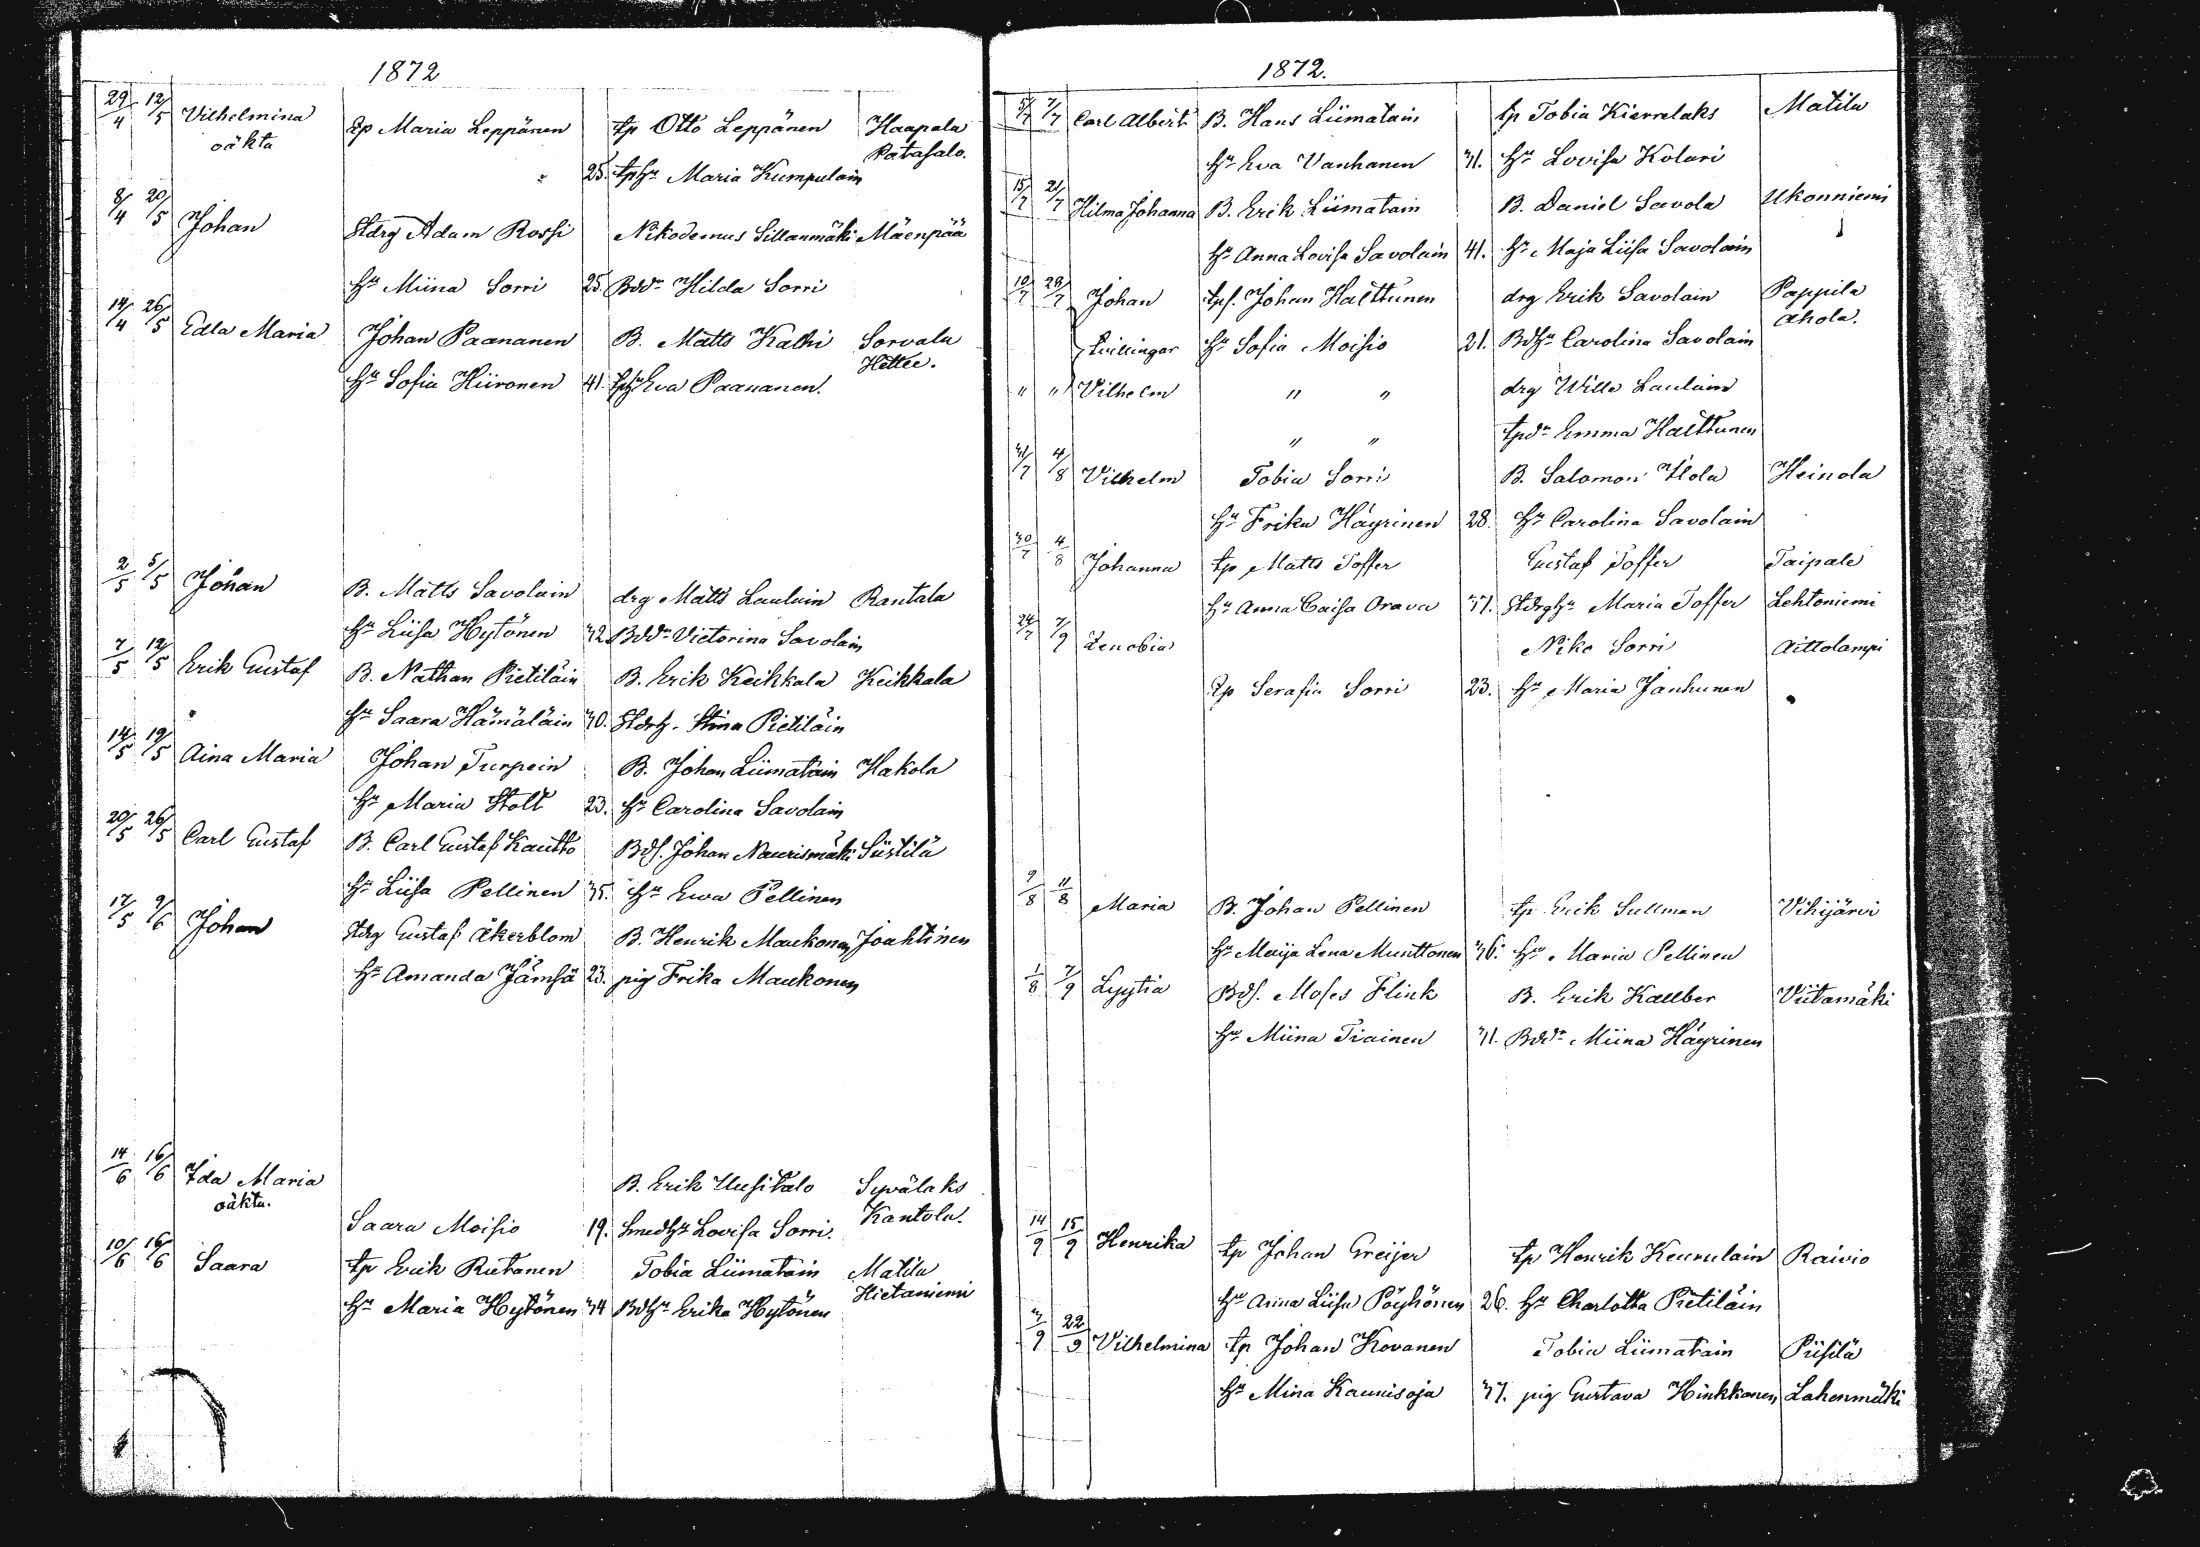 1872
29/4 12/5 Vilhelmina Tp Maria Leppänen tp Otto Leppänen Haapala
oäkta Patasalo.
25. tphu Maria Kumpulain
8/4 20/5 Johan Stdrg Adam Rossi Nikodemus Sillanmäki Mäenpää
hu Miina Sorri 25. Bdr Hilda Sorri
14/4 26/5 Edla Maria Johan Paananen B. Matts Kathi Sorvala
Hettee.
hu Sofia Hiironen 41. Eva Paananen.
2/5 5/5 Johan B. Matts Savolain drg Matts Laulain Rantala
hu Liisa Hytönen 42 Bdr Victorina Savolain
7/5 12/5 Erik Gustaf B. Nathan Pietiläin B. Erik Keikkala Keikkala
hu Saara Hämäläin 40. Stina Pietiläin
14/5 19/5 Aina Maria Johan Turpein B. Johan Liimatain Hakola
hu Maria Stolt 23. hu Carolina Savolain
20/5 26/5 Carl Gustaf B. Carl Gustaf Kautto Bds. Johan Naurismäki Siistilä
hu Liisa Pellinen 35. hu Ewa Pellinen
17/5 9/6 Johan Stdrg Gustaf Åkerblom B. Henrik Maukonen Joahtinen
hu Amanda Jämsä 23. pig Frika Maukonen
14/6 16/6 Ida Maria B. Erik Uusitalo Syvälaks
oäkta. Kantola.
Saara Moisio 19. Smedhu Lovisa Sorri.
10/6 16/6 Saara tp Erik Rutanen Tobia Liimatain Matila
Hietaniemi
hu Maria Hytönen 34 Bdhu Erika Hytönen
1872.
5/7 7/7 Carl Albert B. Hans Liimatain tp Tobia Kierrelaks Matila
hu Eva Vanhanen 31. hu Lovisa Kolari
15/7 21/7 Hilma Johanna B. Erik Liimatain B. Daniel Savola Ukonniemi
hu Anna Lovisa Savolain 41. hu Maja Liisa Savolain
10/7 28/7 Johan tps. Johan Halttunen drg Erik Savolain Pappila
Ahola.
Tvillingar hu Sofia Moisio 21. Bdhu Carolina Savolain
" " Vilhelm " " drg Wille Laulain
" " tpdr Emma Halttunen
31/7 4/8 Vilhelm Tobia Sorri B. Salomon Ilola Heinola
hu Frika Häyrinen 28. hu Carolina Savolain
30/7 4/8 Johanna tp Matts Toffer Gustaf Toffer Taipale
hu Anna Caisa Orava 37. Stdrghu Maria Toffer Lehtoniemi
24/7 7/9 Zenobia Niko Sorri Aittolampi
Tp Serafia Sorri 23. hu Maria Janhunen
9/8 11/8 Maria B. Johan Pellinen tp Erik Sullman Vihijärvi
hu Maija Lena Munttonen 36. hu Maria Pellinen
1/8 7/9 Lyytia Bds. Moses Flink B. Erik Kallber Viitamäki
hu Miina Tiainen 31. Bdr Miina Häyrinen
14/9 15/9 Henrika tp Johan Greijer tp Henrik Keurulain Raivio
hu Anna Liisa Pöyhönen 26. hu Charlotta Pietiläin
22/9 Vilhelmina tp Johan Kovanen Tobia Liimatain Piisilä
hu Mina Kaunisoja 37. pig Gustava Hinkkanen Lahenmäki